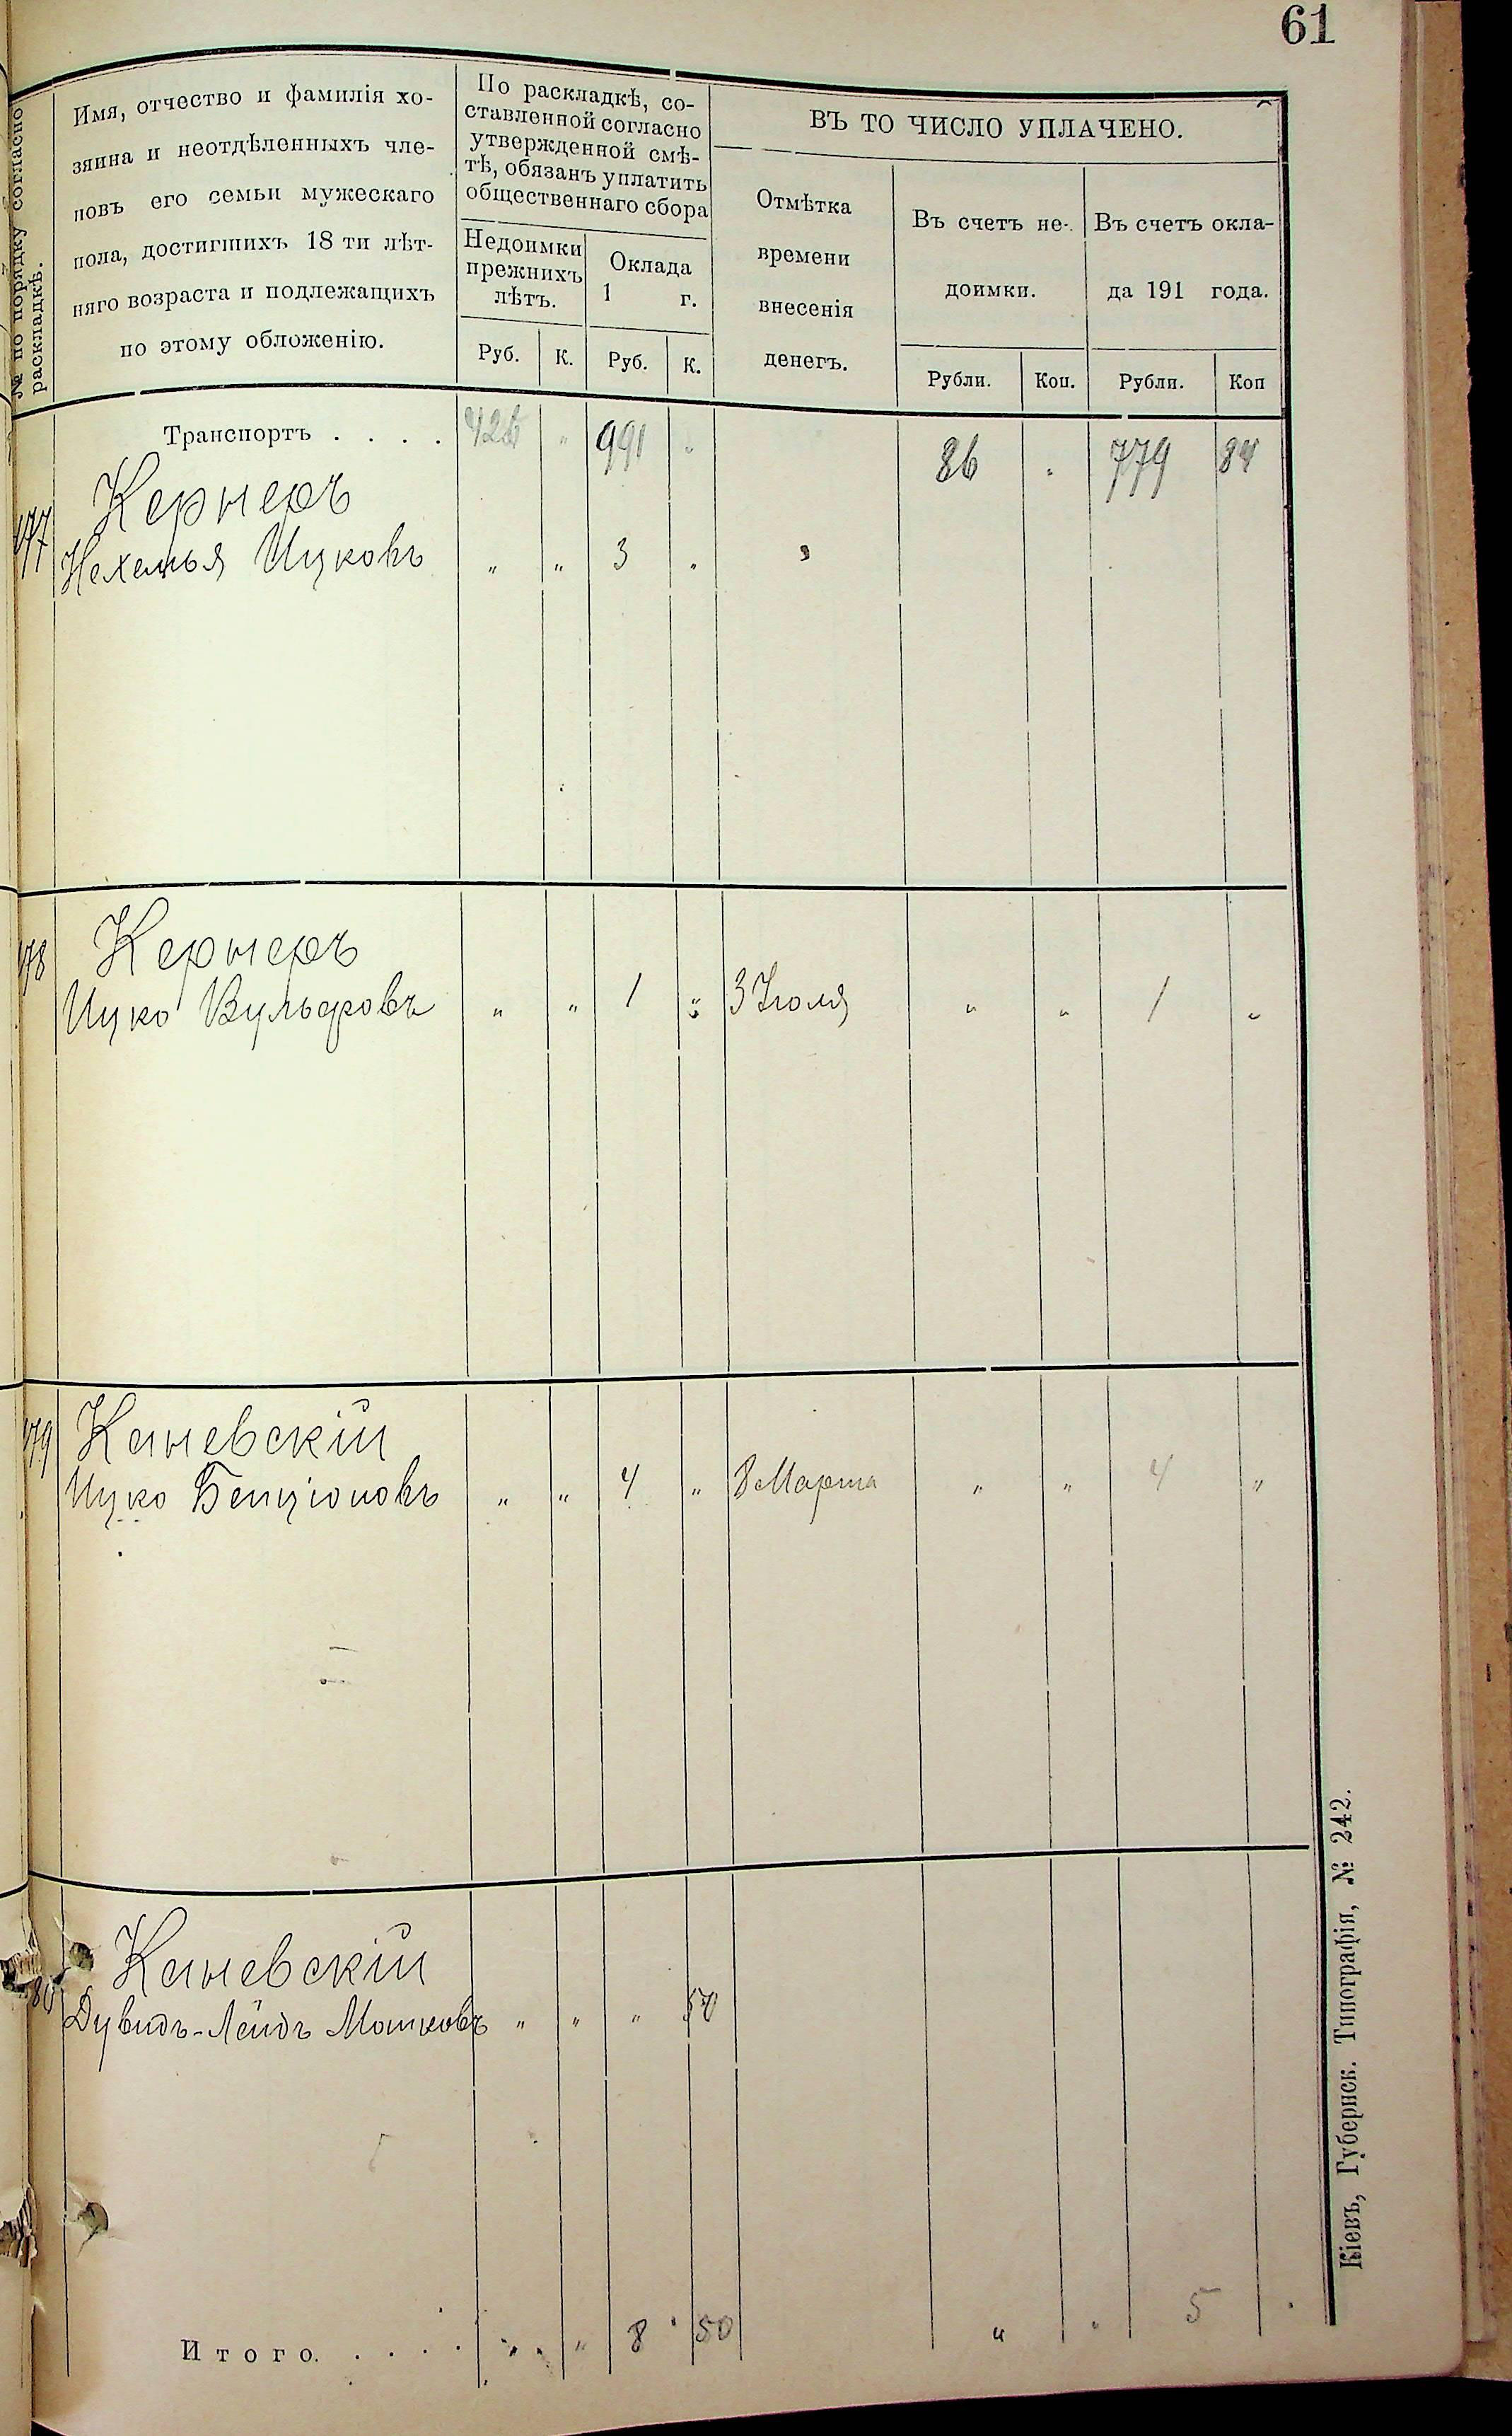 61
№ по порядку согласно
раскладкѣ.
Имя, отчество и фамилія хо-
зяина и неотдѣленныхъ чле-
новъ его семьи мужескаго
пола, достигшихъ 18 ти лѣт-
няго возраста и подлежащихъ
по этому обложенію.
По раскладкѣ, со-
ставленной согласно
утвержденной смѣ-
тѣ, обязанъ уплатить
общественнаго сбора
Недоимки
прежнихъ
лѣтъ.
Оклада
1 г.
Руб. К. Руб. К.
ВЪ ТО ЧИСЛО УПЛАЧЕНО.
Отмѣтка
времени
внесенія
денегъ.
Въ счетъ не-
доимки.
Въ счетъ окла-
да 191 года.
Рубли. Коп. Рубли. Коп
Транспортъ . . . . " 991 " 86 " 779 84
Кернеръ
177 Нехемья Ицковъ " " 3 "
178 Кернеръ
Ицко Вульфовъ " " 1 " 3 Іюля " " 1 "
179 Каневскій
Ицко Бенціоновъ " " 4 " 8 Марта " " 4 "
Каневскій
80 Дувидъ-Лейдъ Мошковъ " " " 50
Итого. . . . . " " 8 50 " " 5
Кіевъ, Губернск. Типографія, № 242.